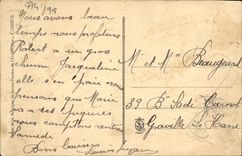 Nous avons beau
temps nous profitons
Robert a un gros
rhume Jacqueline
elle s'en paie nous
pensons que Marie
va a tes
nous comptons rentrer
Samedi
Bons baisers
M. et Mme Beaugeard
39 B. Sadi Carnot
Graville Le Havre